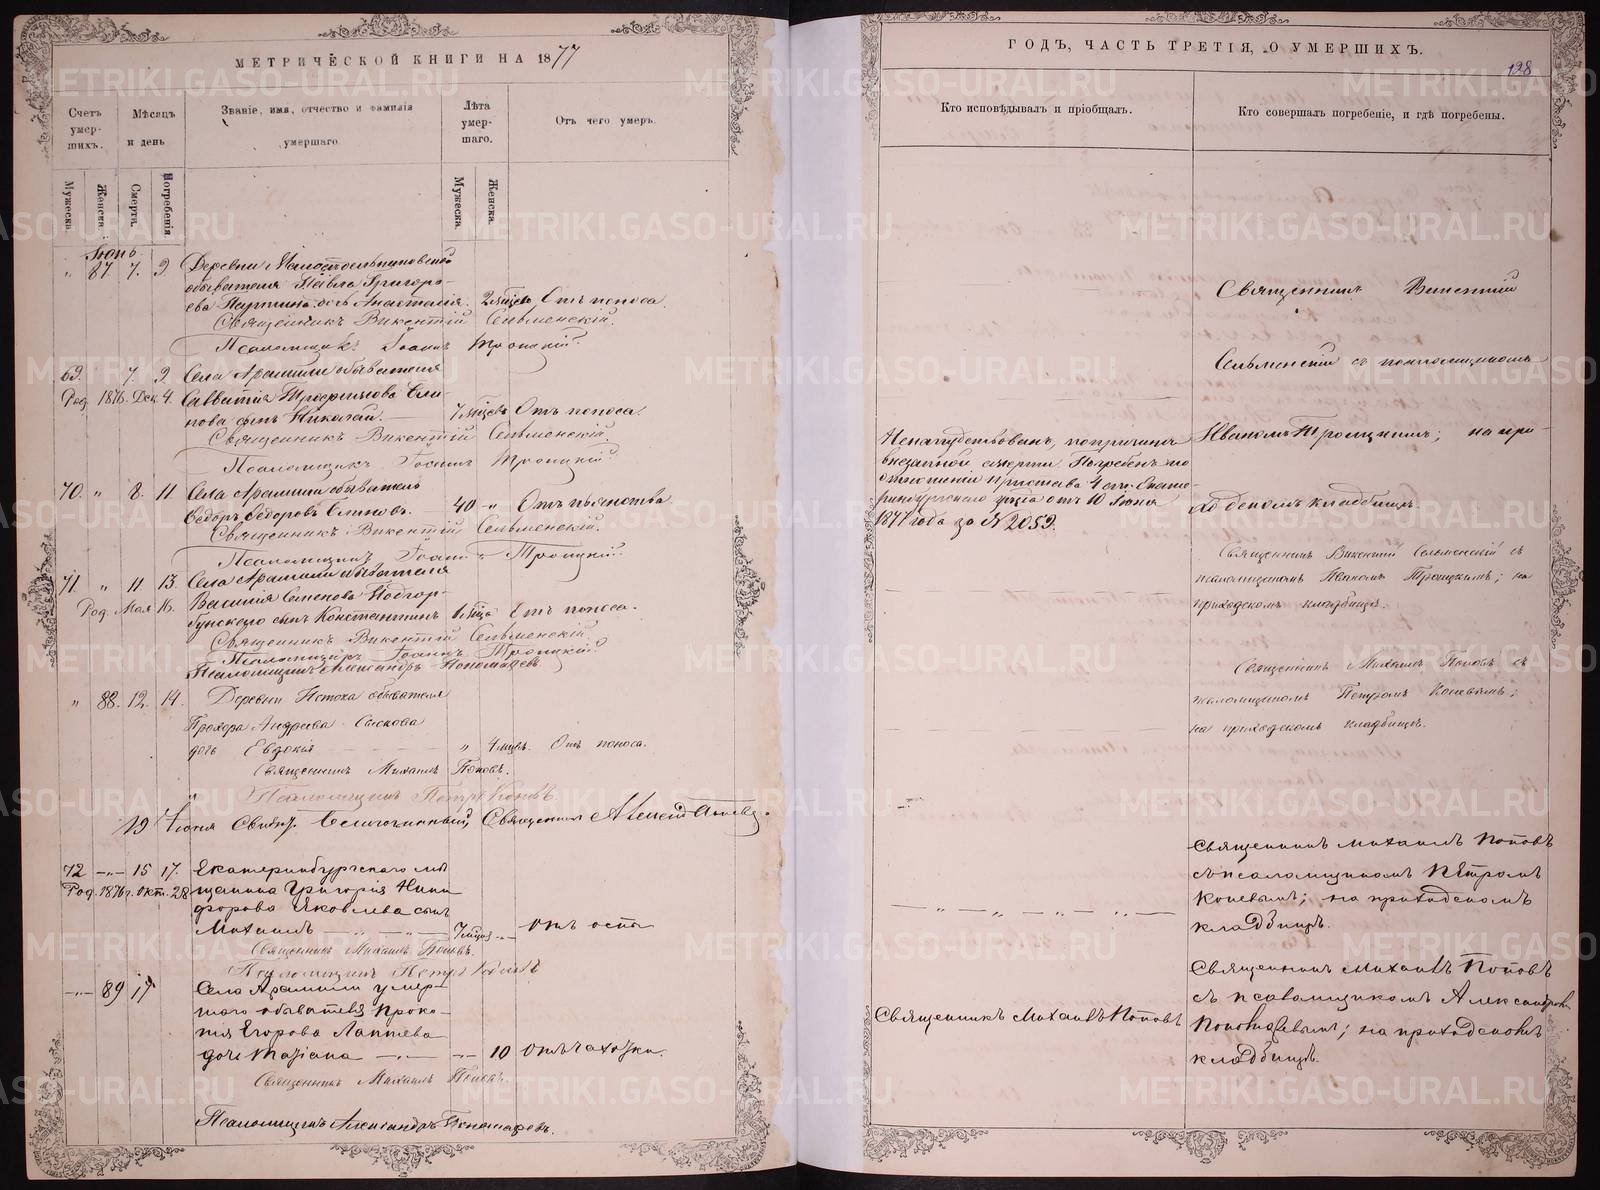 МЕТРИЧЕСКОЙ КНИГИ НА 1877
Счетъ умер- шихъ.
Мѣсяцъ и день
Званіе, имя, отчество и фамилія умершаго.
Лѣта умер- шаго.
Отъ чего умеръ.
Мужеска.
Женска.
Смерти.
Погребенія
Мужеска.
Женска.
Іюнь
„ 87 7. 9. Деревни
обывателя Павла Григорь-
ева дочь Анастасія. 2 Отъ поноса.
Священникъ Викентій Сельменскій.
Псаломщикъ Іоаннъ Троицкій.
69. 7. 9. Села Арамили обывателя
Род. 1876. Дек. 4. Савватія Трофимова Ели-
нова сынъ Николай. — 7 Отъ поноса.
Священникъ Викентій Сельменскій.
Псаломщикъ Іоаннъ Троицкій.
70. „ 8. 11. Села Арамили обыватель
Ѳедоръ Ѳедоровъ — 40 -„- Отъ пьянства
Священникъ Викентій Сельменскій.
Псаломщикъ Іоаннъ Троицкій.
71. „ 11. 13. Села Арамили обывателя
Род. Мая 16. Василія Семенова Подгор-
бунскаго сынъ Константинъ Отъ поноса.
Священникъ Викентій Сельменскій
Псаломщикъ Іоаннъ Троицкій.
Псаломщикъ Александръ Пономаревъ
„ 88. 12. 14. Деревни Истока обывателя
Прохора Андреева Сыскова
дочь Евдокія „ 4 мцъ. Отъ поноса.
Священникъ Михаилъ Поповъ.
Псаломщикъ Петръ Коневъ.
19 Іюня Благочинный, Священникъ
72 -„- 15 17. Екатеринбургскаго мѣ-
Род. 1876 г. Окт. 28 щанина Григорія Ники-
форова Яковлева сынъ
Михаилъ — „ — „ — 7 -„- Отъ оспы
Священникъ Михаилъ Поповъ.
Псаломщикъ Петръ Коневъ
-„- 89 17 Села Арамили умер-
шаго обывателя Проко-
пія Егорова Лаптева
дочь Татіана — „ — -„- 10 Отъ чахотки.
Священникъ Михаилъ Поповъ.
Псаломщикъ Александръ Пономаревъ.
ГОДЪ, ЧАСТЬ ТРЕТІЯ, О УМЕРШИХЪ.
128
Кто исповѣдывалъ и пріобщалъ.
Кто совершалъ погребеніе, и гдѣ погребены.
Священникъ Викентій
Сельменскій съ псаломщикомъ
Иваномъ Троицкимъ; на при-
ходскомъ кладбищѣ.
Ненапутствованъ, по причинѣ
внезапной смерти. Погребенъ по
отношенію Пристава 4 стн. Екате-
ринбургскаго уѣзда отъ 10 Іюня
1877 года за № 2059.
Священникъ Викентій Сельменскій съ
псаломщикомъ Иваномъ Троицкимъ; на
приходскомъ кладбищѣ.
Священникъ Михаилъ Поповъ съ
псаломщикомъ Петромъ Коневымъ;
на приходскомъ кладбищѣ.
Священникъ Михаилъ Поповъ
съ псаломщикомъ Петромъ
Коневымъ; на приходскомъ
кладбищѣ.
Священникъ Михаилъ Поповъ
Священникъ Михаилъ Поповъ
съ псаломщикомъ Александромъ
Пономаревымъ; на приходскомъ
кладбищѣ.
METRIKI.GASO-URAL.RU